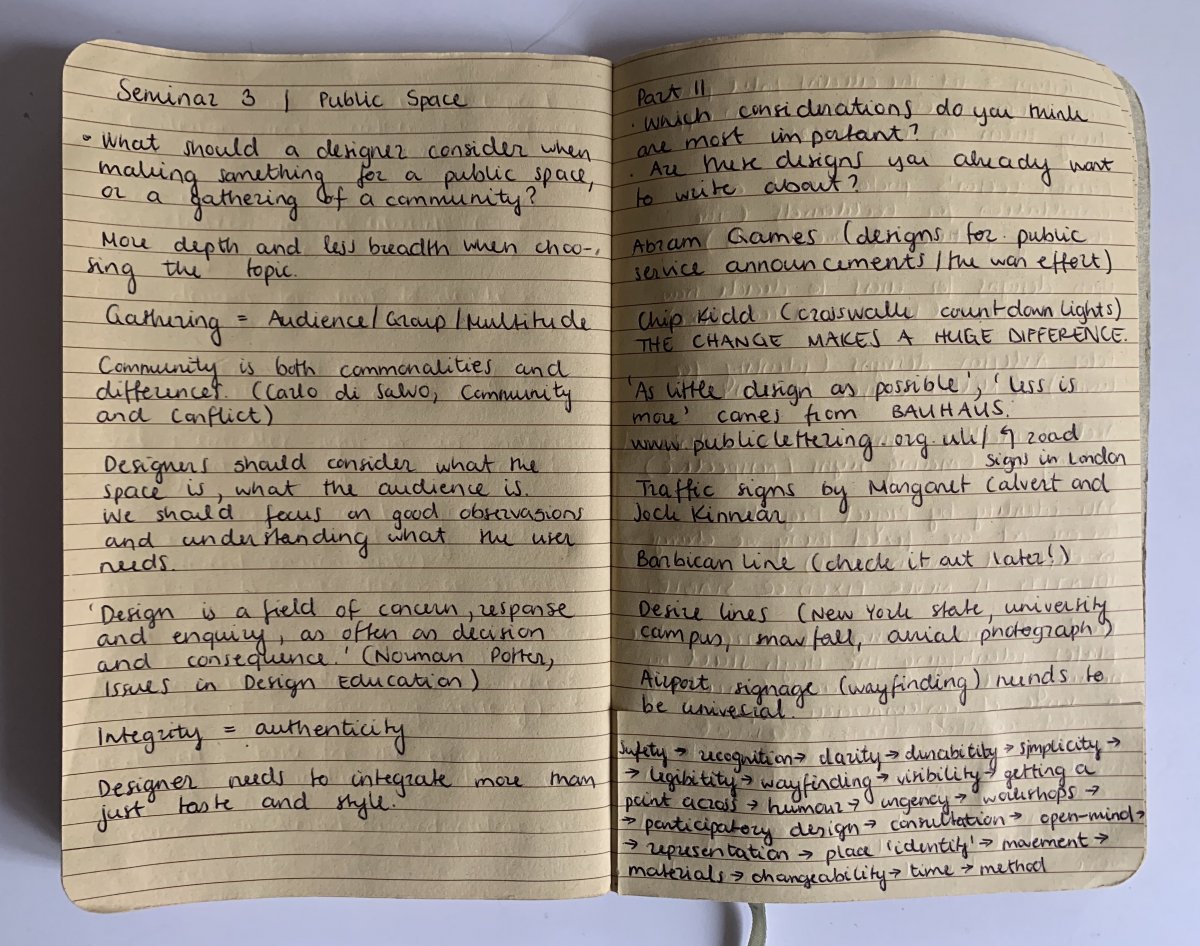 Seminar 3 | Public Space
• What should a designer consider when
making something for a public space,
or a gathering of a community?
More depth and less breadth when choo-
sing the topic.
Gathering = Audience/Group/Multitude
Community is both commonalities and
differences. (Carlo di Salvo, Community
and Conflict)
Designers should consider what the
space is, what the audience is.
We should focus on good observasions
and understanding what the user
needs.
'Design is a field of concern, response
and enquiry, as often as decision
and consequence.' (Norman Potter,
Issues in Design Education)
Integrity = authenticity
Designer needs to integrate more than
just taste and style.
Part II
. Which considerations do you think
are most important?
. Are there designs you already want
to write about?
Abram Games (designs for public
service announcements / the war effort)
Chip Kidd (crosswalk countdown lights)
THE CHANGE MAKES A HUGE DIFFERENCE.
'As little design as possible', 'less is
more' comes from BAUHAUS.
www.publiclettering.org.uk/ ↰ road
signs in London
Traffic signs by Margaret Calvert and
Jock Kinnear
Barbican line (check it out later!)
Desire lines (New York state, university
campus, snowfall, aerial photograph)
Airport signage (wayfinding) needs to
be universial.
Safety → recognition → clarity → durability → simplicity →
→ legibitity → wayfinding → visibility → getting a
point across → humour → urgency → workshops →
→ participatory design → consultation → open-mind →
→ representation → place 'identity' → movement →
materials → changeability → time → method